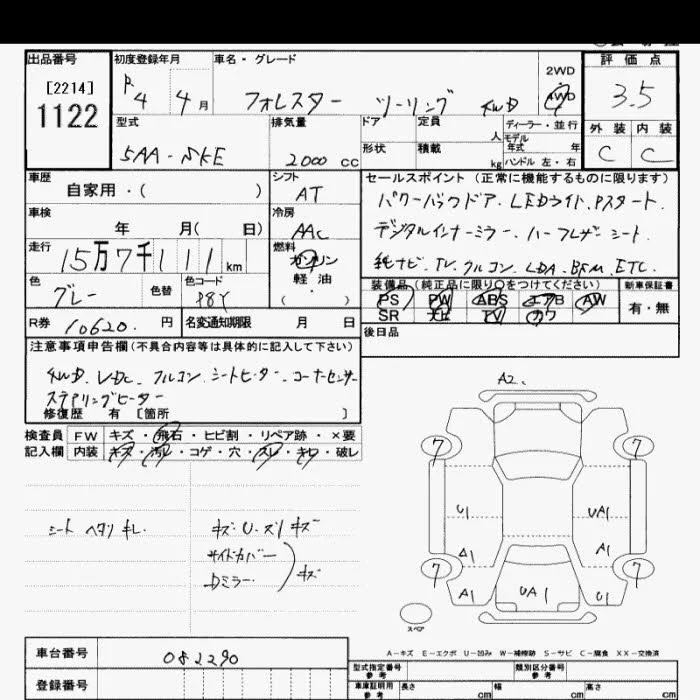 出品番号 初度登録年月 車名・グレード 2WD 4WD 評価点
[2214]
1122
R4 4月 フォレスター ツーリング 4WD 3.5
型式 排気量 ドア 定員 人 ディーラー・並行 外装 内装
5AA-SKE 2000 cc 形状 積載 kg モデル年式 年 ハンドル 左・右 C C
車歴 自家用・( ) シフト AT セールスポイント(正常に機能するものに限ります)
パワーバックドア. LEDライト. Pスタート.
車検 年 月( 日) 冷房 AAC
デジタルインナーミラー. ハーフレザーシート.
走行 15万7千111km 燃料 ガソリン 軽油 ・( )
純ナビ. TV. クルコン. LDA. BSM. ETC.
色 グレー 色替 色コード P8Y
装備品(純正品に限り○をつけてください) 新車保証書
PS PW ABS エアB AW 有・無
SR ナビ TV カワ
R券 10620. 円 名変通知期限 月 日
後日品
注意事項申告欄(不具合内容等は具体的に記入して下さい)
4WD. VDC. フルコン. シートヒーター. コーナーセンサー
ステアリングヒーター
修復歴 有 [箇所 ]
検査員記入欄 FW キズ・飛石・ヒビ割・リペア跡・×要
内装 キズ・汚レ・コゲ・穴・スレ・キレ・破レ
シート ヘタリ キレ.
キズ・U・スリキズ
サイドカバー
Dミラー. キズ
A2.
7 7
U1 UA1
A1 A1
7 7
A1 UA1 U1
スペア
A-キズ E-エクボ U-凹み W-補修跡 S-サビ C-腐食 XX-交換済
車台番号 082290
登録番号
型式指定番号 参考 類別区分番号 参考
車庫証明用 参考 長さ cm 幅 cm 高さ cm